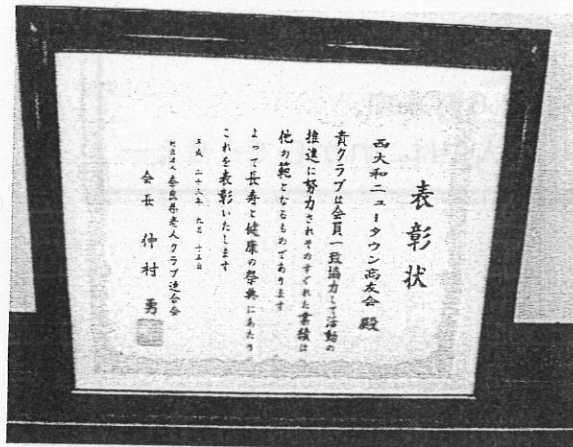 表彰状
西大和ニュータウン高友会 殿
貴クラブは会員一致協力して活動の
推進に努力されそのすぐれた業績は
他の範となるものであります
よって長寿と健康の祭典にあたり
これを表彰いたします
平成 二十三年 九月 十五日
奈良県老人クラブ連合会
会長 仲村 勇